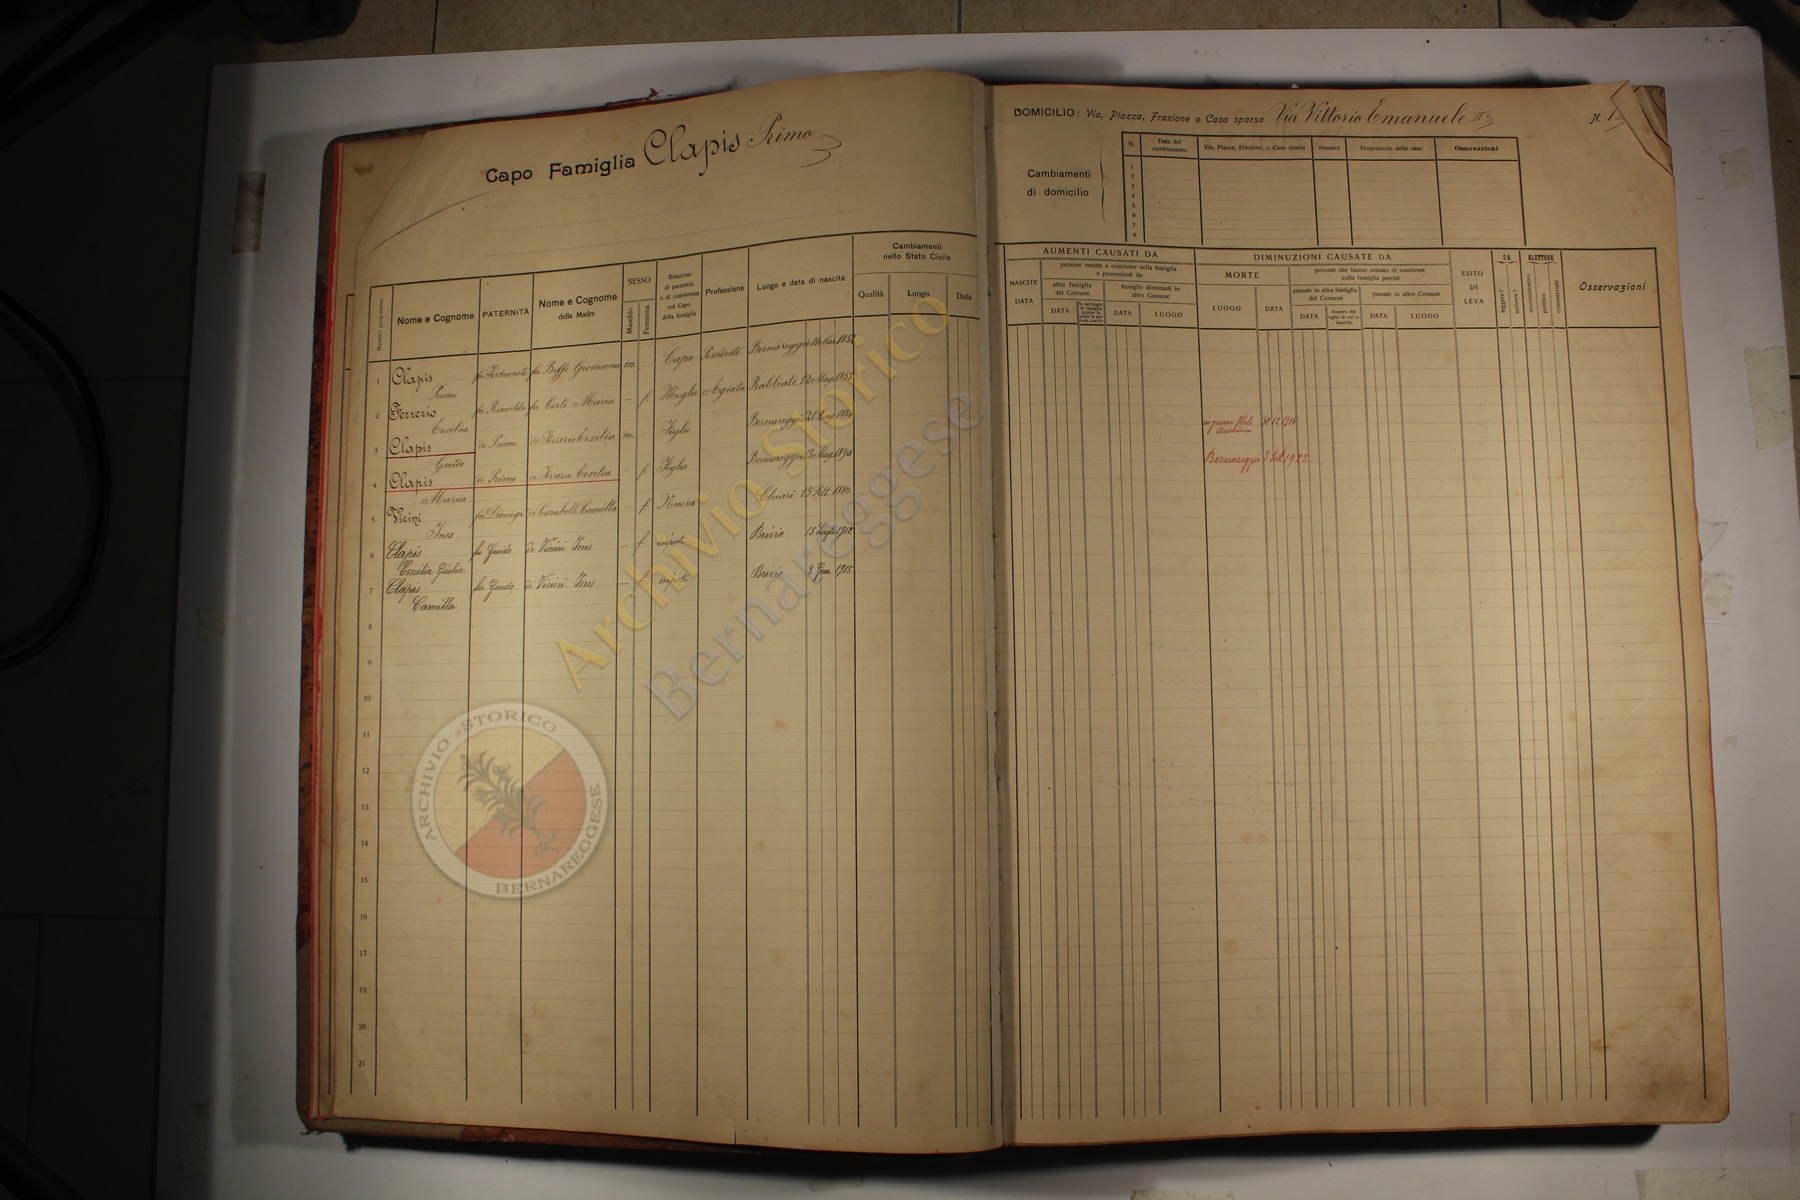 Capo Famiglia Clapis Primo
DOMICILIO: Via, Piazza, Frazione o Casa sparsa Via Vittorio Emanuele II
N.
Cambiamenti
di domicilio
N. Data del cambiamento Via, Piazza, Frazione, o Casa sparsa Numero Proprietario della casa Osservazioni
1
2
3
4
5
6
7
8
Numero progressivo
Nome e Cognome
PATERNITÀ
Nome e Cognome
della Madre
SESSO
Maschio
Femmina
Relazione
di parentela
o di convivenza
col Capo
della famiglia
Professione
Luogo e data di nascita
Cambiamenti
nello Stato Civile
Qualità
Luogo
Data
AUMENTI CAUSATI DA
NASCITE
DATA
persone venute a convivere nella famiglia
e provenienti da
altra famiglia
del Comune
DATA
famiglie dimoranti in
altro Comune
DATA
LUOGO
DIMINUZIONI CAUSATE DA
MORTE
LUOGO
DATA
persone che hanno cessato di convivere
colla famiglia perchè
passate in altra famiglia
del Comune
DATA
passate in altro Comune
DATA
LUOGO
ESITO
DI
LEVA
SA
leggere?
scrivere?
ELETTORE
amministrativo
politico
commerciale
Osservazioni
1 Clapis Primo fu Fortunato fu Biffi Giovanna m. - Capo Possidente Bernareggio
2 Ferrerio Ersilia fu Rinaldo fu Corti Maria - f. Moglie Agiata Robbiate 12 Mag.
3 Clapis Guido di Primo di Ferrerio Ersilia m. - Figlio Bernareggio 21
in guerra
30 12 1916
4 Clapis Maria di Primo di Ferrerio Ersilia - f. Figlia Bernareggio
Bernareggio 3 1922
5 Vicini Ines fu Dionigi di Carabelli Camilla - f. Nuora Chiari 13 Sett. 1880
6 Clapis Emilia Giulia fu Guido di Vicini Ines - f nipote Brivio 15 Luglio 1912
7 Clapis Camilla fu Guido di Vicini Ines - f. nipote Brivio Gen. 1915
8
9
10
11
12
13
14
15
16
17
18
19
20
21
Archivio Storico
Bernareggese
ARCHIVIO STORICO
BERNAREGGESE